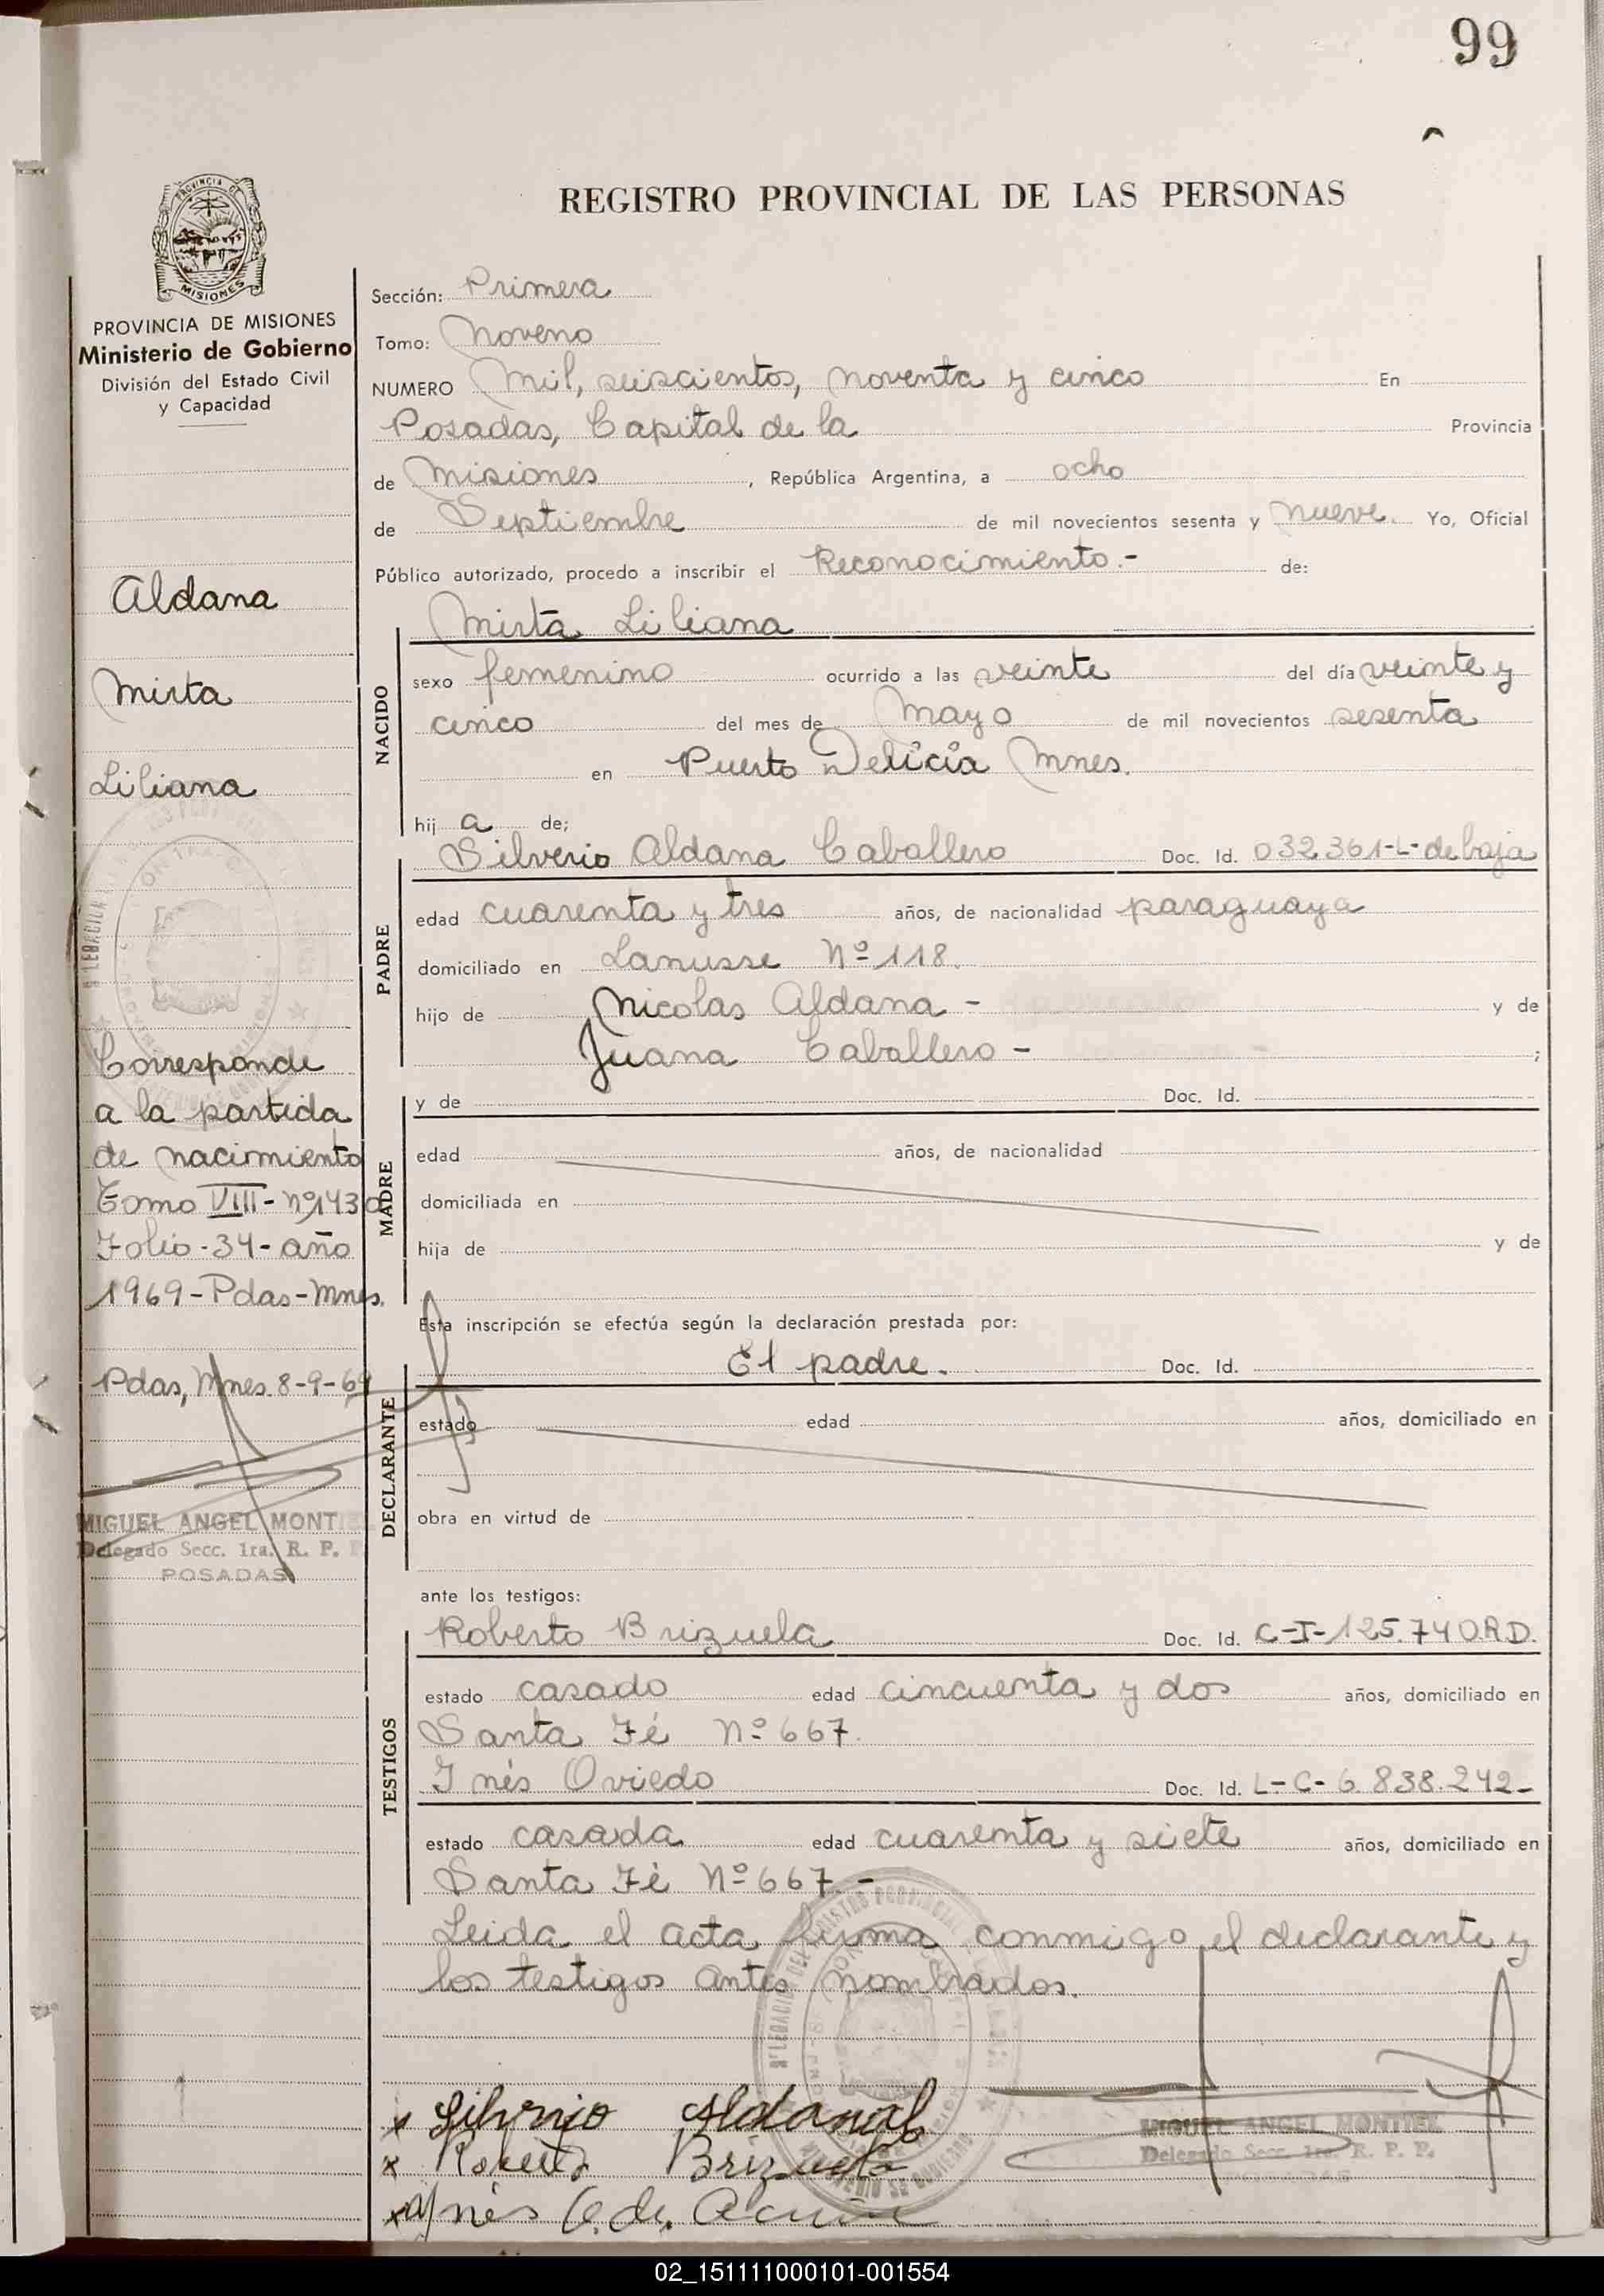 99
REGISTRO PROVINCIAL DE LAS PERSONAS
PROVINCIA DE MISIONES
Ministerio de Gobierno
División del Estado Civil
y Capacidad
Aldana
Mirta
Liliana
Corresponde
a la partida
de nacimiento
Tomo VIII - Nº 1430
Folio - 34 - año
1969 - Pdas - Mnes.
Pdas, Mnes. 8-9-69
MIGUEL ANGEL MONTIEL
Delegado Secc. 1ra. R. P. P.
POSADAS
Sección: Primera
Tomo: Noveno
NUMERO Mil, seiscientos, noventa y cinco En
Posadas, Capital de la Provincia
de Misiones, República Argentina, a ocho
de Septiembre de mil novecientos sesenta y nueve. Yo, Oficial
Público autorizado, procedo a inscribir el Reconocimiento.- de:
Mirta Liliana
NACIDO
sexo femenino ocurrido a las veinte del día veinte y
cinco del mes de Mayo de mil novecientos sesenta
en Puerto Delicia Mnes.
hij a de;
Silverio Aldana Caballero Doc. Id. 032.361-L-de baja
PADRE
edad cuarenta y tres años, de nacionalidad paraguaya
domiciliado en Lanusse Nº 118.
hijo de Nicolas Aldana - y de
Juana Caballero - ;
y de Doc. Id.
MADRE
edad años, de nacionalidad
domiciliada en
hija de y de
Esta inscripción se efectúa según la declaración prestada por:
El padre. Doc. Id.
DECLARANTE
estado edad años, domiciliado en
obra en virtud de
ante los testigos:
Roberto Brizuela Doc. Id. C-I-125.740.R.D.
TESTIGOS
estado casado edad cincuenta y dos años, domiciliado en
Santa Fé Nº 667.
Inés Oviedo Doc. Id. L-C-6.838.242-
estado casada edad cuarenta y siete años, domiciliado en
Santa Fé Nº 667.-
Leida el acta firma conmigo el declarante y
los testigos antes nombrados.
x Silverio Aldana C
x Roberto Brizuela
x Inés O. de Acuña
MIGUEL ANGEL MONTIEL
Delegado Secc. 1ra. R. P. P.
POSADAS
02_151111000101-001554